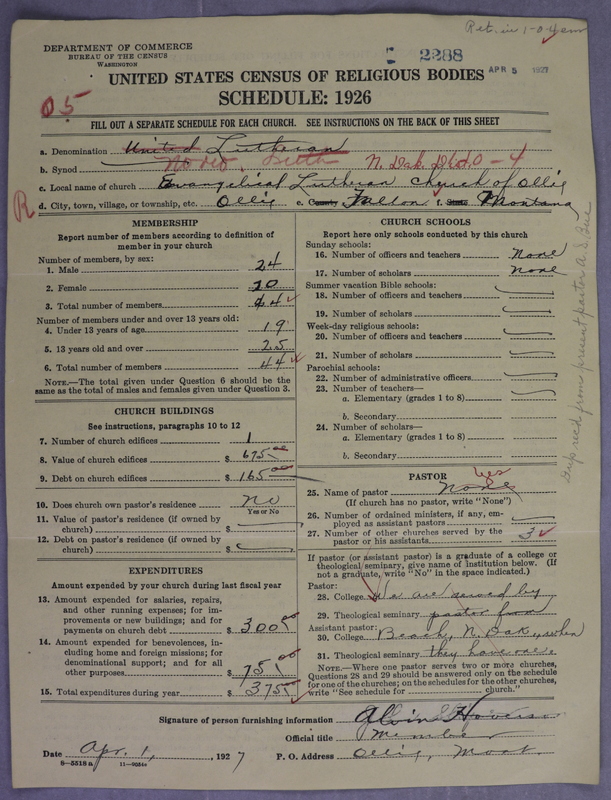 Ret. in 1-0-4
DEPARTMENT OF COMMERCE
BUREAU OF THE CENSUS
WASHINGTON
2288
APR 5 1927
UNITED STATES CENSUS OF RELIGIOUS BODIES
SCHEDULE: 1926
05
FILL OUT A SEPARATE SCHEDULE FOR EACH CHURCH. SEE INSTRUCTIONS ON THE BACK OF THIS SHEET
a. Denomination United Lutheran
b. Synod N. Dak. Dist. 0-4
c. Local name of church Evangelical Lutheran Church of Ollie
R
d. City, town, village, or township, etc. Ollie e. County Fallon f. State Montana
MEMBERSHIP
Report number of members according to definition of
member in your church
Number of members, by sex:
1. Male 24
2. Female 20
3. Total number of members 44
Number of members under and over 13 years old:
4. Under 13 years of age 19
5. 13 years old and over 25
6. Total number of members 44
NOTE.—The total given under Question 6 should be the
same as the total of males and females given under Question 3.
CHURCH BUILDINGS
See instructions, paragraphs 10 to 12
7. Number of church edifices 1
8. Value of church edifices $ 675.00
9. Debt on church edifices $ 165.00
10. Does church own pastor's residence No
Yes or No
11. Value of pastor's residence (if owned by
church) $
12. Debt on pastor's residence (if owned by
church) $
EXPENDITURES
Amount expended by your church during last fiscal year
13. Amount expended for salaries, repairs,
and other running expenses; for im-
provements or new buildings; and for
payments on church debt $ 300.00
14. Amount expended for benevolences, in-
cluding home and foreign missions; for
denominational support; and for all
other purposes $ 75.00
15. Total expenditures during year $ 375
CHURCH SCHOOLS
Report here only schools conducted by this church
Sunday schools:
16. Number of officers and teachers None
17. Number of scholars None
Summer vacation Bible schools:
18. Number of officers and teachers
19. Number of scholars
Week-day religious schools:
20. Number of officers and teachers
21. Number of scholars
Parochial schools:
22. Number of administrative officers
23. Number of teachers—
a. Elementary (grades 1 to 8)
b. Secondary
24. Number of scholars—
a. Elementary (grades 1 to 8)
b. Secondary
PASTOR
yes
25. Name of pastor None
(If church has no pastor, write "None")
26. Number of ordained ministers, if any, em-
ployed as assistant pastors
27. Number of other churches served by the
pastor or his assistants 3
If pastor (or assistant pastor) is a graduate of a college or
theological seminary, give name of institution below. (If
not a graduate, write "No" in the space indicated.)
Pastor:
28. College We are served by
29. Theological seminary pastor from
Assistant pastor:
30. College Beach, N. Dak, when
31. Theological seminary they have one.
NOTE.—Where one pastor serves two or more churches,
Questions 28 and 29 should be answered only on the schedule
for one of the churches; on the schedules for the other churches,
write "See schedule for church."
from present pastor
Signature of person furnishing information
Official title Member
Date Apr. 1, 1927 P. O. Address Ollie, Mont.
8-5518a 11-9034